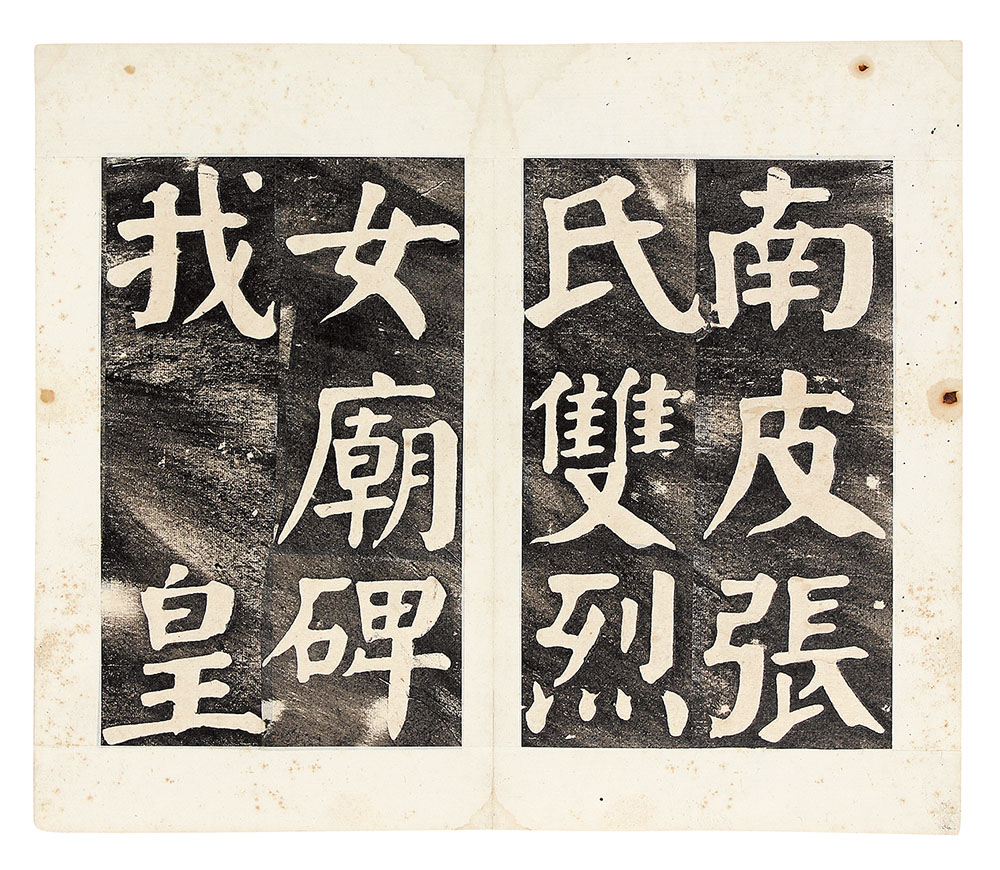 南皮張
氏雙烈
女廟碑
我皇